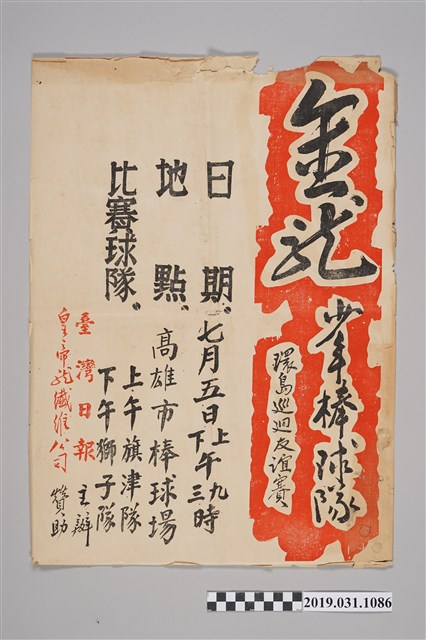 金龍
少年棒球隊
環島巡迴友誼賽
日期：七月五日上午九時
下午三時
地點：高雄市棒球場
比賽球隊：上午旗津隊
下午獅子隊
臺灣日報主辦
皇帝龍纖維公司贊助
2019.031.1086